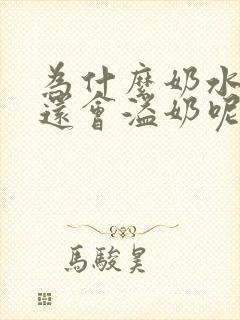 為什麼奶水
還會溢奶呢
馬駿昊